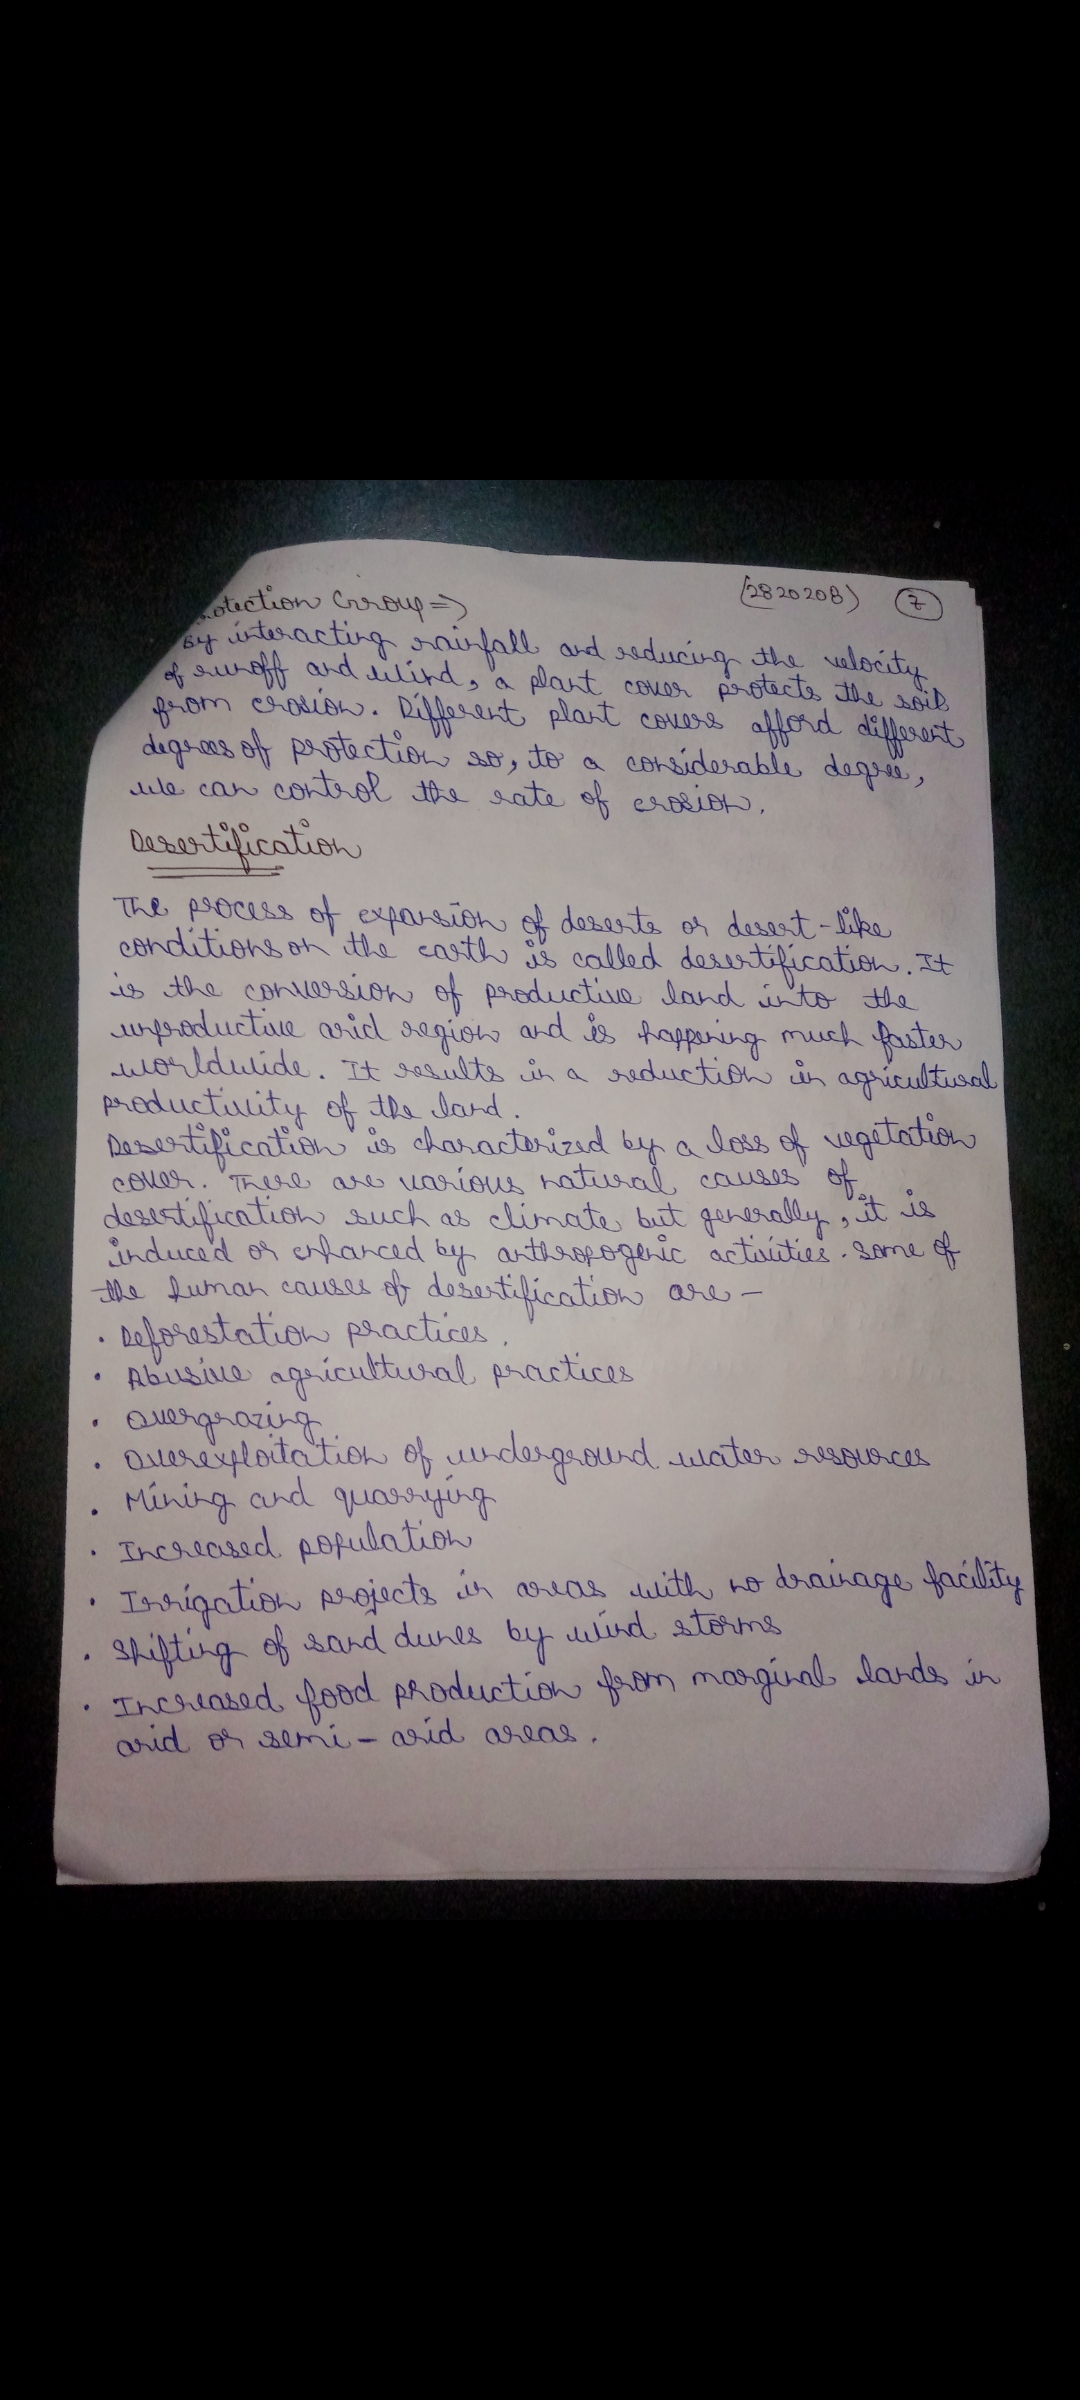 otection Group⇒ (2820208) 7
By interacting rainfall and reducing the velocity
of runoff and wind, a plant cover protects the soil
from erosion. Different plant covers afford different
degrees of protection so, to a considerable degree,
we can control the rate of erosion.
Desertification
The process of expansion of deserts or desert-like
conditions on the earth is called desertification. It
is the conversion of productive land into the
unproductive arid region and is happening much faster
worldwide. It results in a reduction in agricultural
productivity of the land.
Desertification is characterized by a loss of vegetation
cover. There are various natural causes of
desertification such as climate but generally, it is
induced or enhanced by anthropogenic activities. Some of
the human causes of desertification are -
• Deforestation practices.
• Abusive agricultural practices
• Overgrazing
• Overexploitation of underground water resources
• Mining and quarrying
• Increased population
• Irrigation projects in areas with no drainage facility
• Shifting of sand dunes by wind storms
• Increased food production from marginal lands in
arid or semi-arid areas.